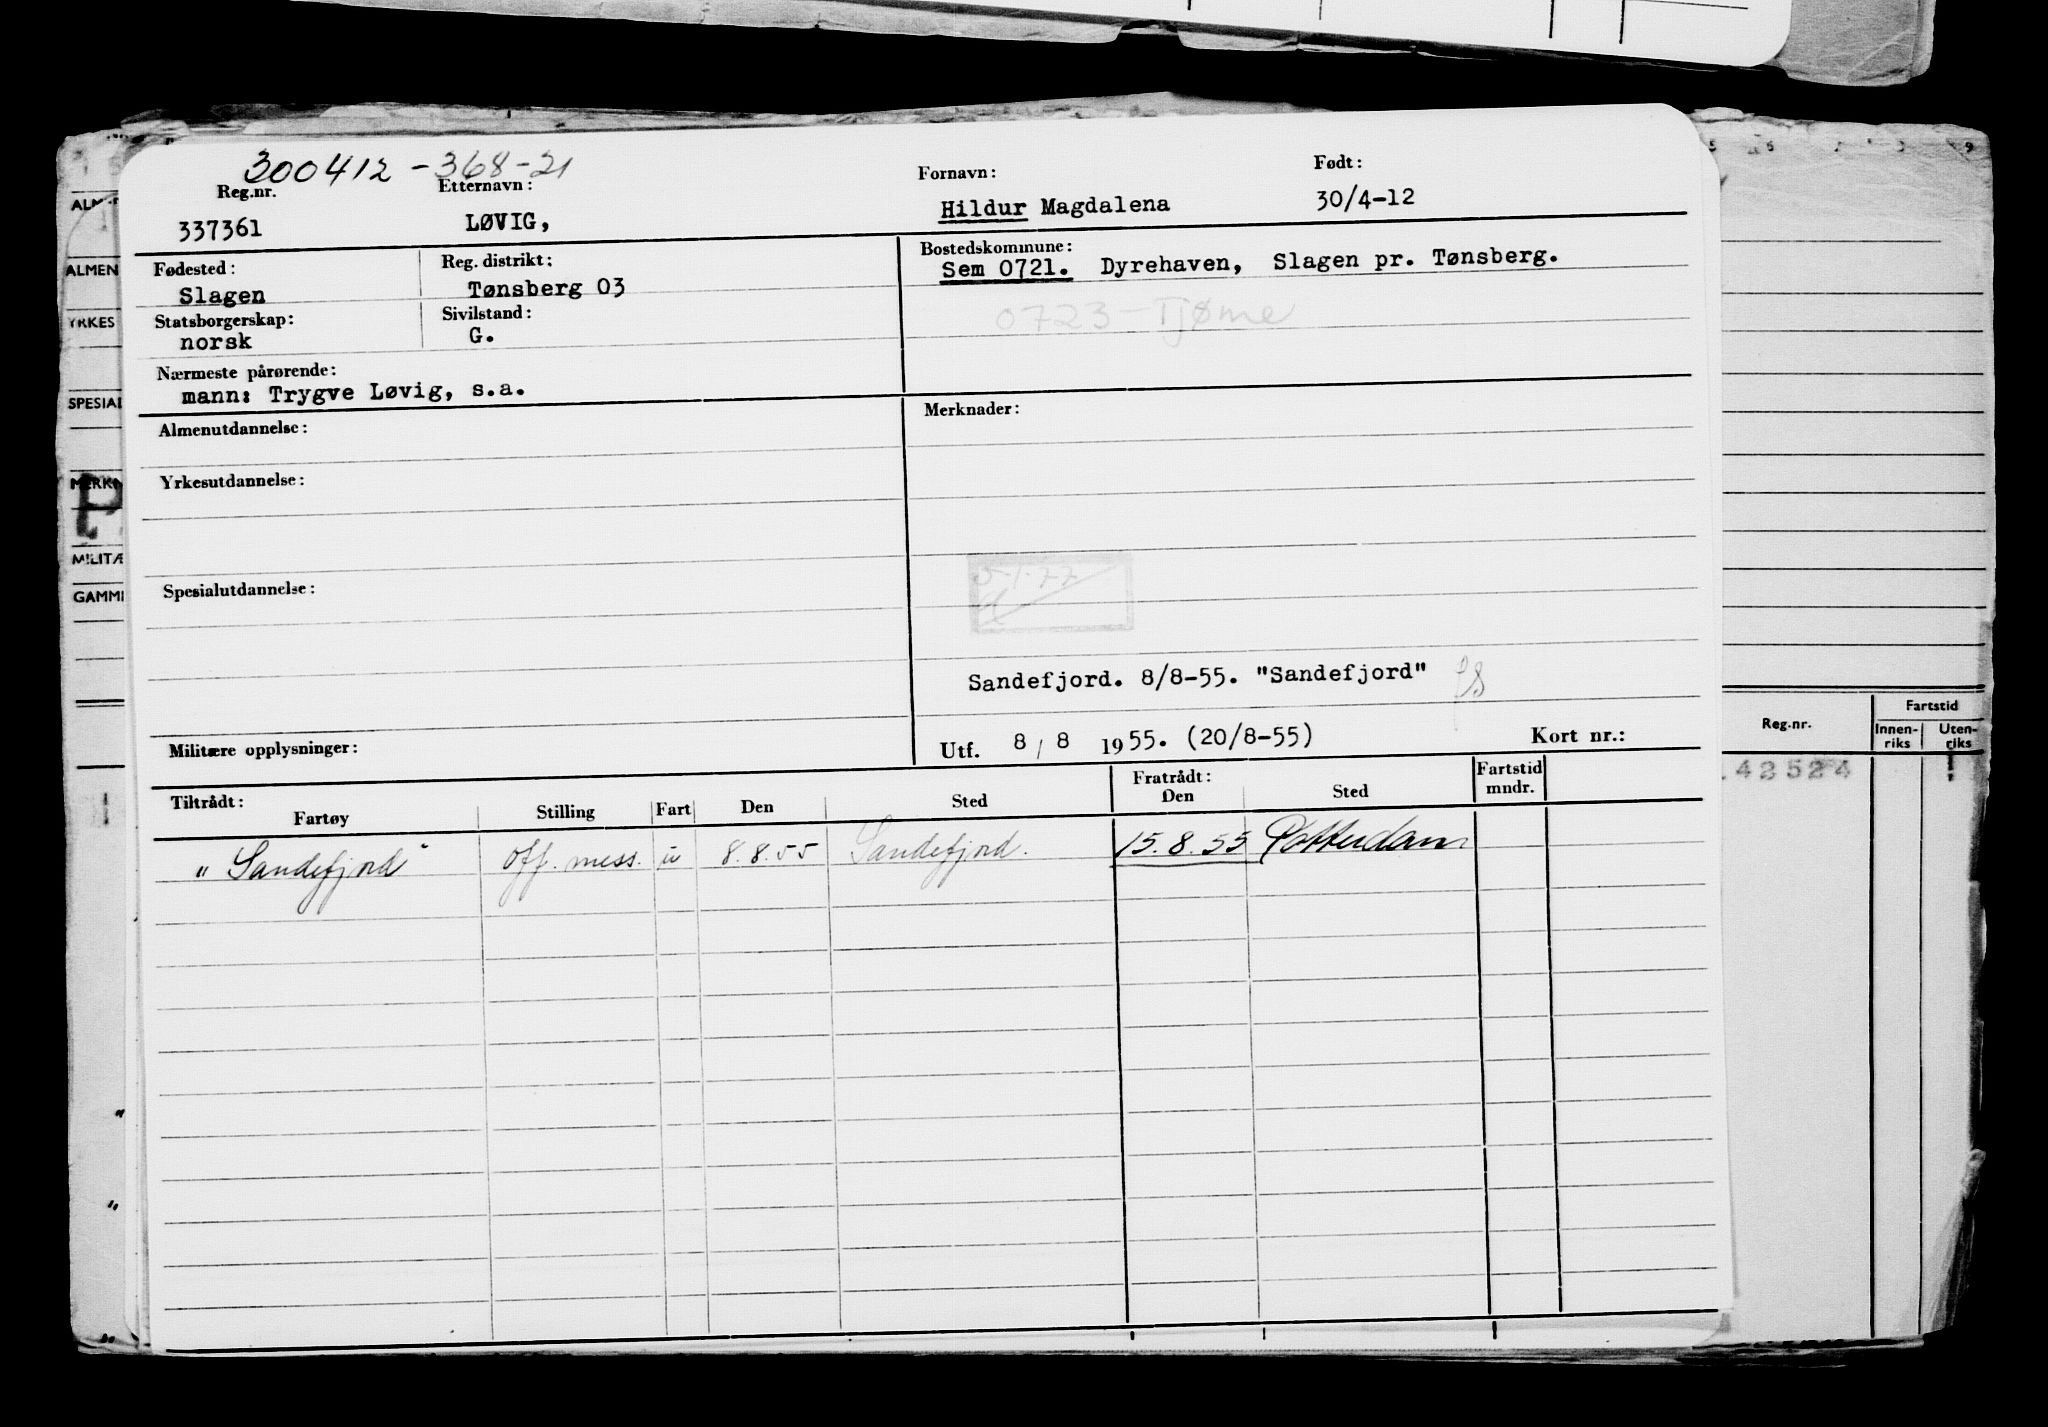 300412-368-21
Reg.nr. Etternavn: Fornavn: Født:
337361 LØVIG, Hildur Magdalena 30/4-12
Fødested: Reg. distrikt: Bostedskommune:
Slagen Tønsberg 03 Sem 0721. Dyrehaven, Slagen pr. Tønsberg.
Statsborgerskap: Sivilstand: 0723-Tjøme
norsk G.
Nærmeste pårørende:
mann: Trygve Løvig, s.a.
Almenutdannelse: Merknader:
Yrkesutdannelse:
5-1-77
Spesialutdannelse:
Sandefjord. 8/8-55. "Sandefjord"
Militære opplysninger: Utf. 8/8 1955. (20/8-55) Kort nr.:
Tiltrådt: Fratrådt: Fartstid
Fartøy Stilling Fart Den Sted Den Sted mndr.
"Sandefjord" off. mess. u 8.8.55 Sandefjord. 15.8.55 Rotterdam
ALMEN
YRKES
SPESIAL
MERKN
MILITÆ
GAMM
Fartstid
Reg.nr. Innen- Uten-
riks riks
42524